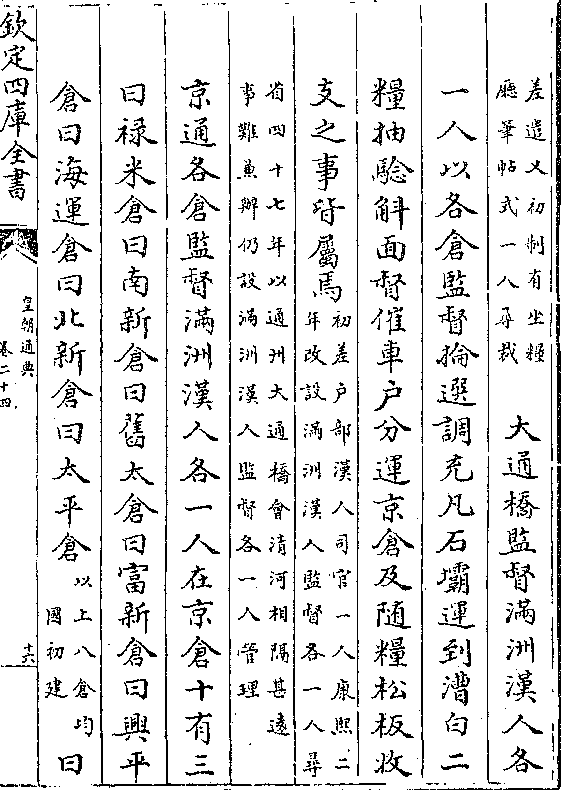 差遣又初制有坐糧
廳筆帖式一人尋裁
大通橋監督滿洲漢人各
一人以各倉監督掄選調充凡石壩運到漕白二
糧抽驗斛面督催車戶分運京倉及随糧松板收
支之事皆屬焉
初差户部漢人司官一人康熙二
年改設滿洲漢人監督各一人尋
省四十七年以通州大通橋會清河相隔甚遠
事難兼辦仍設滿洲漢人監督各一人管理
京通各倉監督滿洲漢人各一人在京倉十有三
曰禄米倉曰南新倉曰舊太倉曰富新倉曰興平
倉曰海運倉曰北新倉曰太平倉
以上八倉均
國初建
曰
欽定四庫全書
皇朝通典
卷二十四
十六